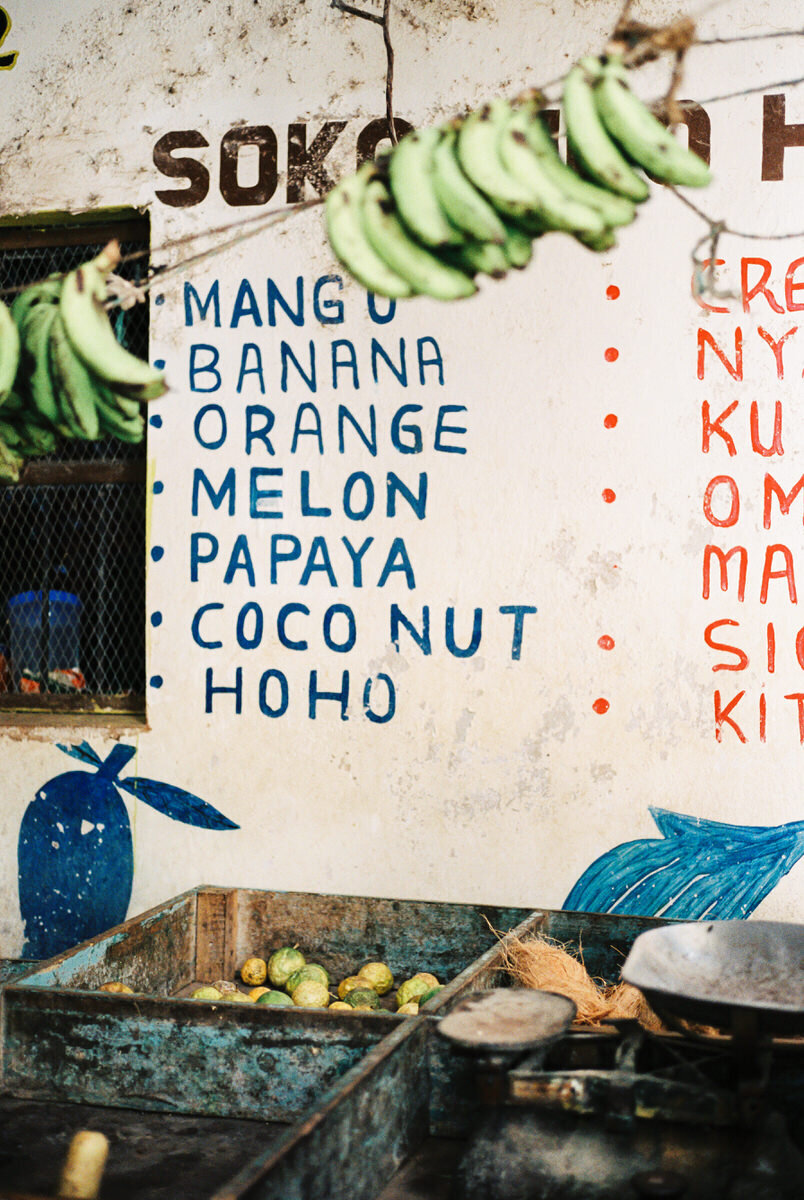 SOKO
MANGO
BANANA
ORANGE
MELON
PAPAYA
COCO NUT
HOHO
CRE
NY
KU
OM
MA
SIO
KIT